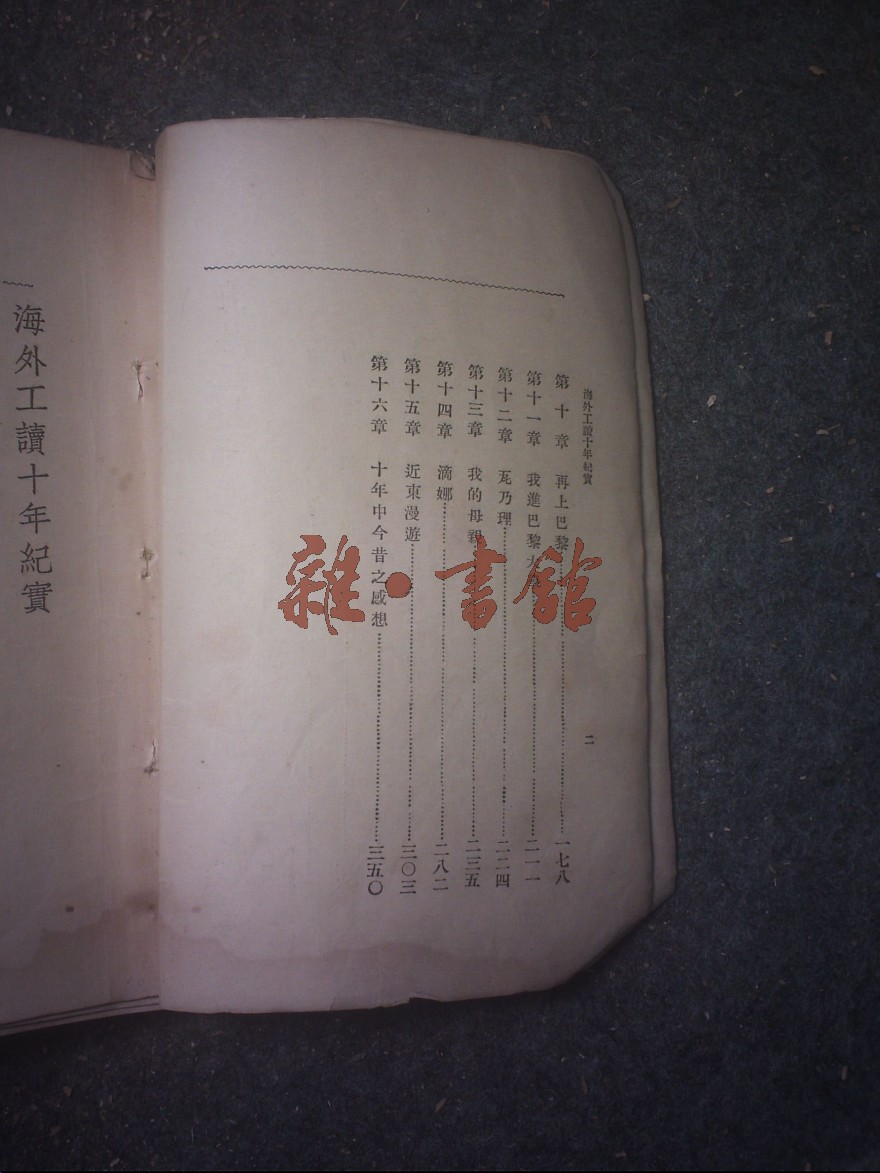 海外工讀十年紀實
二
第十章 再上巴黎 一七八
第十一章 我進巴黎大 二一一
第十二章 瓦乃理 二二四
第十三章 我的母親 二三五
第十四章 滴娜 二八二
第十五章 近東漫遊 三〇三
第十六章 十年中今昔之感想 三五〇
海外工讀十年紀實
雜·書館